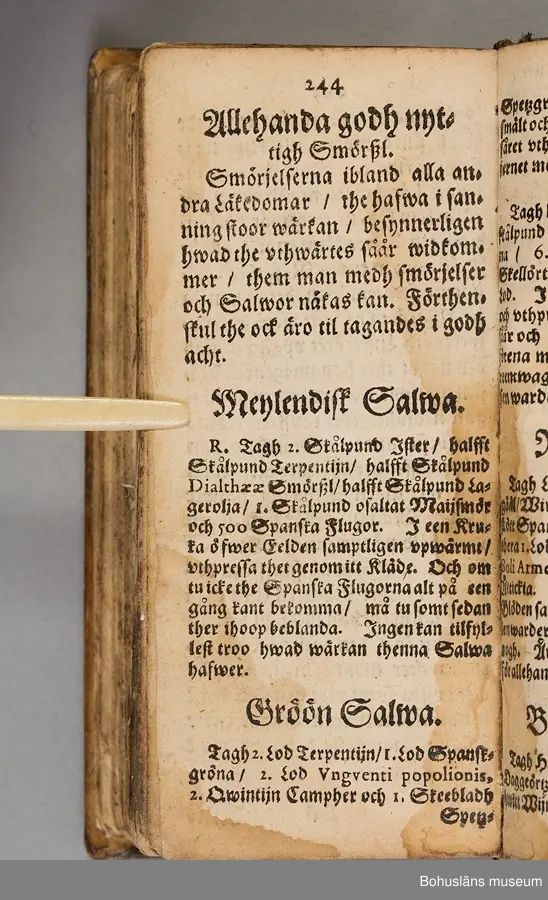 244
Allehanda godh nyt-
tigh Smörßl.
Smörjelserna ibland alla an-
dra Läkedomar / the hafwa i san-
ning stoor wärkan / besynnerligen
hwad the vthwärtes såår widkom-
mer / them man medh smörjelser
och Salwor nåkas kan. Förthen-
skul the ock äro til tagandes i godh
acht.
Meylendisk Salwa.
R. Tagh 2. Skålpund Ister / halfft
Skålpund Terpentijn / halfft Skålpund
Dialthææ Smörßl / halfft Skålpund La-
gerolja / 1. Skålpund osaltat Maijsmör
och 500 Spanska Flugor. J een Kru-
ka öfwer Eelden samptligen vpwärmt /
vthpressa thet genom itt Kläde. Och om
tu icke the Spanska Flugorna alt på een
gång kant bekomma / må tu somt sedan
ther ihoop beblanda. Ingen kan tilfyl-
lest troo hwad wärkan thenna Salwa
hafwer.
Gröön Salwa.
Tagh 2. Lod Terpentijn / 1. Lod Spansk-
gröna / 2. Lod Vngventi popolionis,
2. Qwintijn Campher och 1. Skeebladh
Spetz-
Spetzgr
smält och
såret vth
Tagh
skålpund
/ 6.
Skellört
och vthpr
Tagh
Spans
1. Lod
Boli Arme
Glöden sa
warder
B
Tagh H
Bohusläns museum